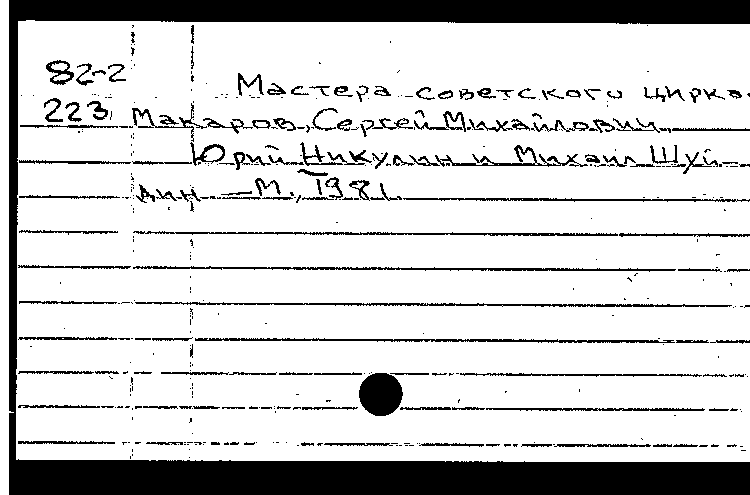 82-2
Мастера советского цирка.
223 Макаров, Сергей Михайлович.
Юрий Никулин и Михаил Шуй-
дин — М., 1981.